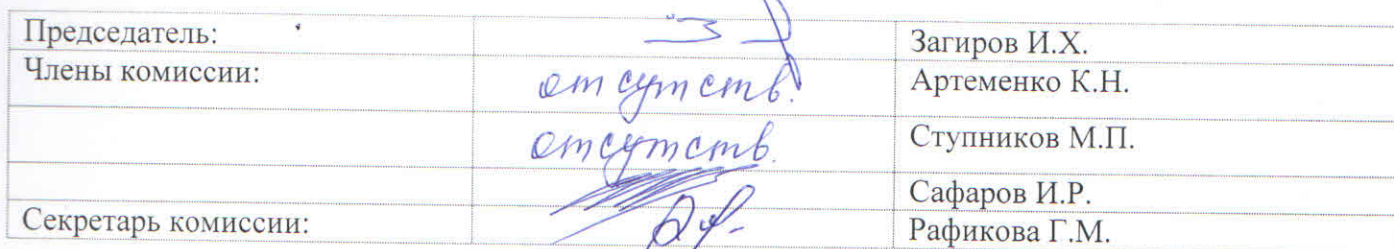 Председатель: Загиров И.Х.
Члены комиссии: отсутств. Артеменко К.Н.
отсутств. Ступников М.П.
Сафаров И.Р.
Секретарь комиссии: Рафикова Г.М.